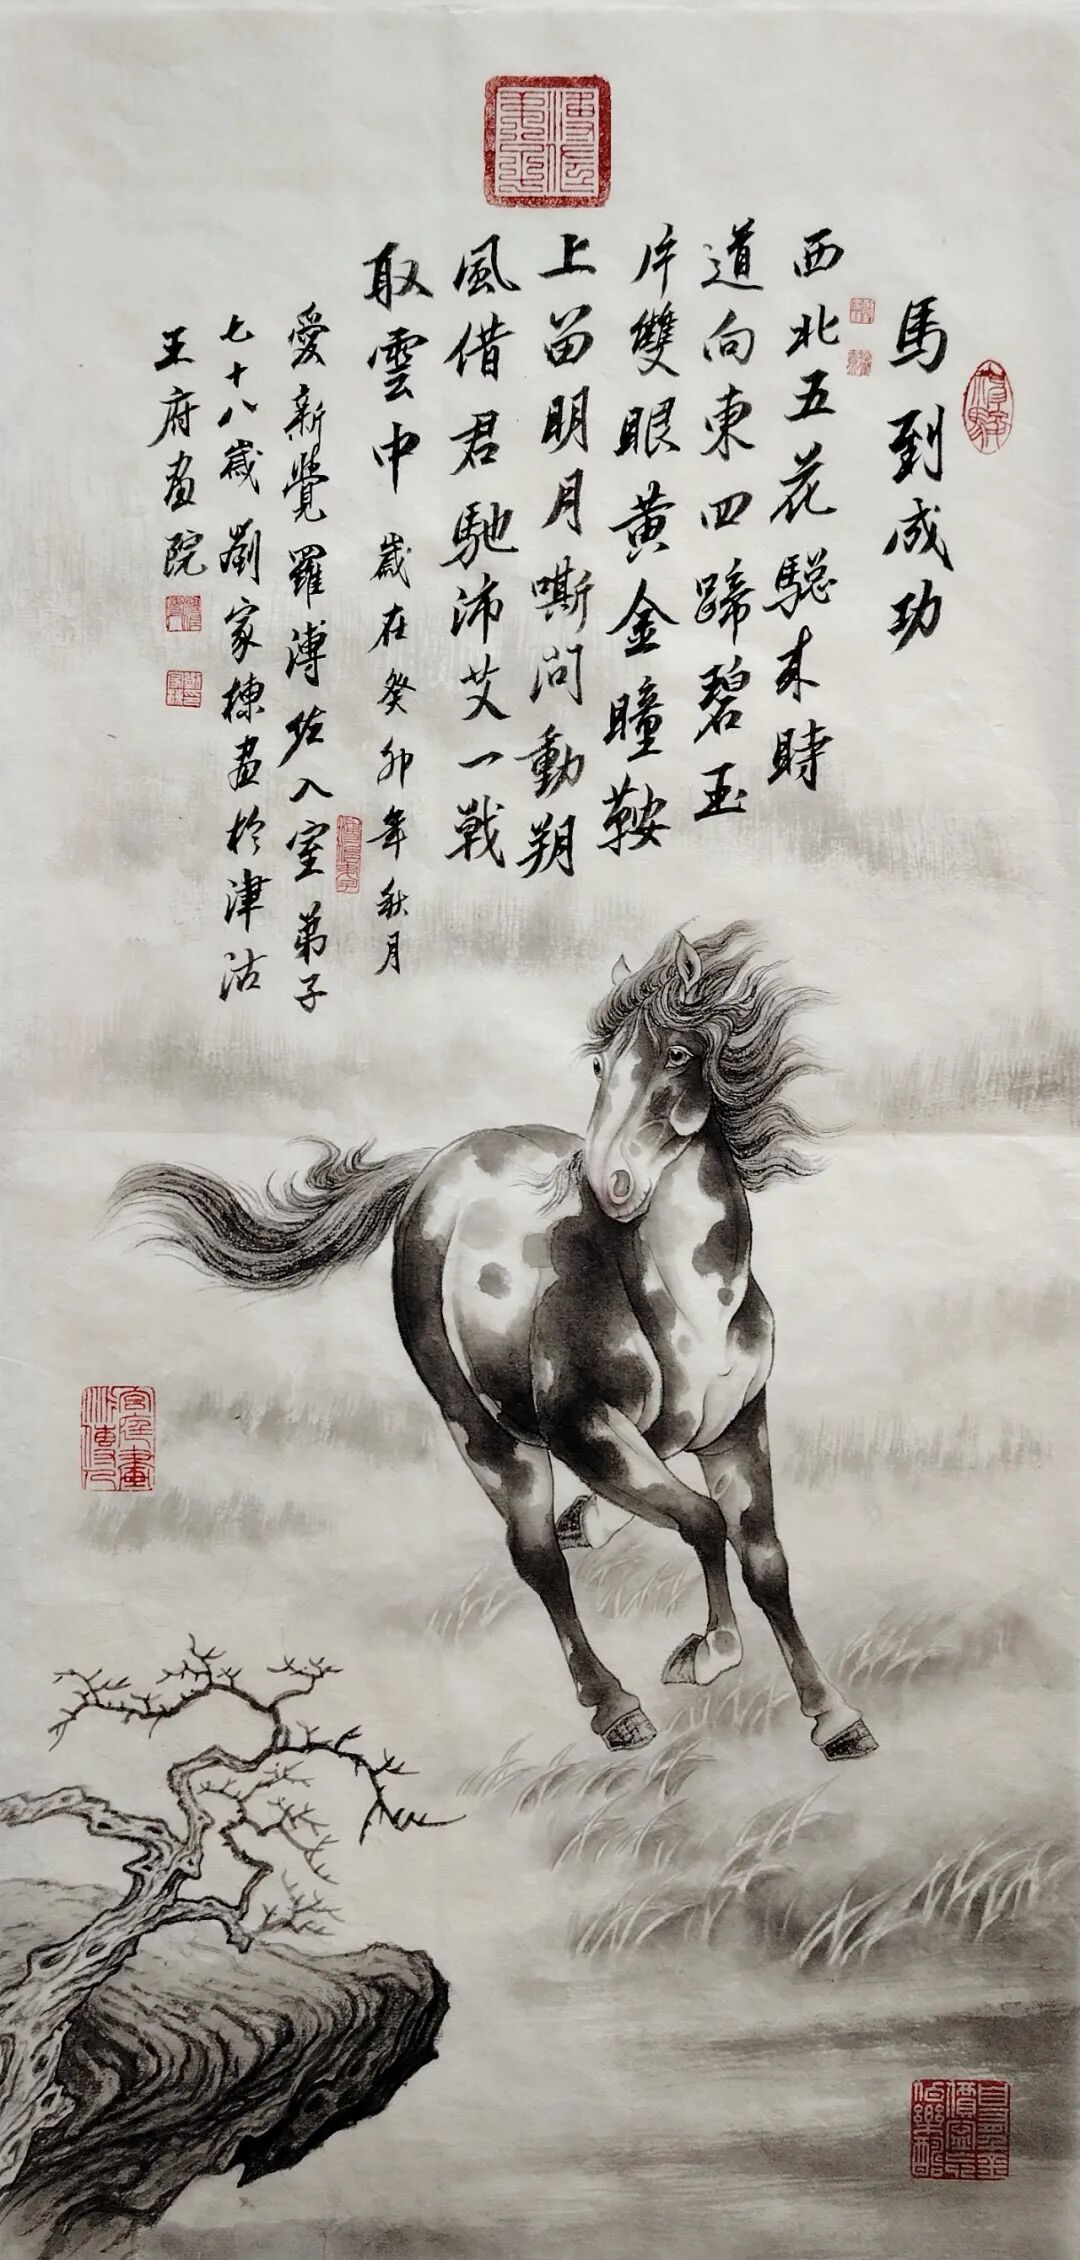 馬到成功
西北五花驄来時
道向東四蹄碧玉
片雙眼黄金瞳鞍
上留明月嘶問動朔
風借君馳沛艾一戰
取雲中 歲在癸卯年秋月
愛新覺羅溥佐入室弟子
七十八歲劉家棟畫於津沽
王府畫院